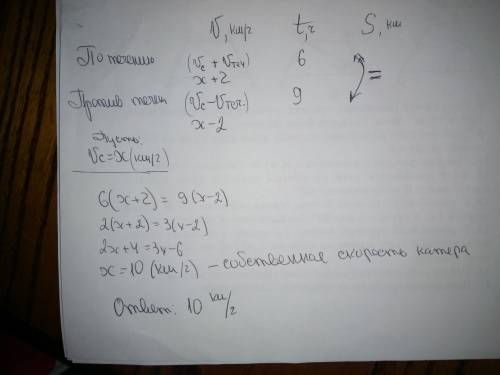 V, км/ч t, ч S, км
По течению (Vc + Vтеч) 6
x+2 =
Против течен (Vc - Vтеч.) 9
x-2
Пусть:
Vc = x (км/ч)
6(x+2) = 9(x-2)
2(x+2) = 3(x-2)
2x+4 = 3x-6
x = 10 (км/ч) - собственная скорость катера
Ответ: 10 км/ч